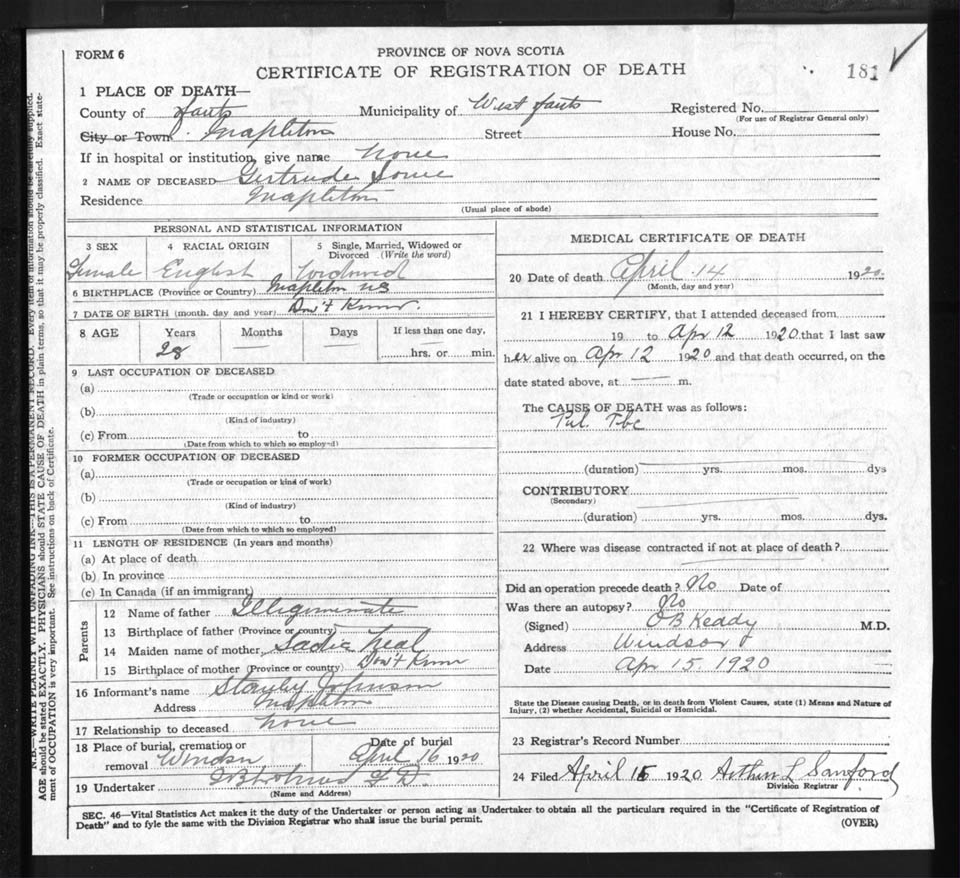 FORM 6
PROVINCE OF NOVA SCOTIA
CERTIFICATE OF REGISTRATION OF DEATH
181
1 PLACE OF DEATH—
County of Hants Municipality of West Hants Registered No.
(For use of Registrar General only)
City or Town Mapleton Street House No.
If in hospital or institution, give name None
2 NAME OF DECEASED Gertrude
Residence Mapleton
(Usual place of abode)
PERSONAL AND STATISTICAL INFORMATION
3 SEX 4 RACIAL ORIGIN 5 Single, Married, Widowed or Divorced (Write the word)
Female English Widowed
6 BIRTHPLACE (Province or Country) Mapleton NS
7 DATE OF BIRTH (month, day and year) Don't Know
8 AGE Years Months Days If less than one day,
28 hrs. or min.
9 LAST OCCUPATION OF DECEASED
(a)
(Trade or occupation or kind or work)
(b)
(Kind of industry)
(c) From to
(Date from which to which so employ-d)
10 FORMER OCCUPATION OF DECEASED
(a)
(Trade or occupation or kind of work)
(b)
(Kind of industry)
(c) From to
(Date from which to which so employed)
11 LENGTH OF RESIDENCE (In years and months)
(a) At place of death
(b) In province
(c) In Canada (if an immigrant)
Parents
12 Name of father Illegeminate
13 Birthplace of father (Province or country)
14 Maiden name of mother Sadie Neal
15 Birthplace of mother (Province or country) Don't Know
16 Informant's name Stanley Johnson
Address Mapleton
17 Relationship to deceased None
18 Place of burial, cremation or removal Windsor Date of burial April 16 1920
19 Undertaker
(Name and Address)
MEDICAL CERTIFICATE OF DEATH
20 Date of death April 14 1920
(Month, day and year)
21 I HEREBY CERTIFY, that I attended deceased from
19 to Apr 12 1920 that I last saw
her alive on Apr 12 1920 and that death occurred, on the
date stated above, at — m.
The CAUSE OF DEATH was as follows:
Pul. Tbc
(duration) yrs. mos. dys
CONTRIBUTORY
(Secondary)
(duration) yrs. mos. dys.
22 Where was disease contracted if not at place of death?
Did an operation precede death? No Date of
Was there an autopsy? No
(Signed) O B Keady M.D.
Address Windsor
Date Apr 15 1920
State the Disease causing Death, or in death from Violent Causes, state (1) Means and Nature of
Injury, (2) whether Accidental, Suicidal or Homicidal.
23 Registrar's Record Number
24 Filed April 15 1920 Arthur L Sanford
Division Registrar
SEC. 46—Vital Statistics Act makes it the duty of the Undertaker or person acting as Undertaker to obtain all the particulars required in the "Certificate of Registration of
Death" and to fyle the same with the Division Registrar who shall issue the burial permit.
(OVER)
N.B.—WRITE PLAINLY WITH UNFADING INK—THIS IS A PERMANENT RECORD. Every item of information should be carefully supplied.
AGE should be stated EXACTLY. PHYSICIANS should STATE CAUSE OF DEATH in plain terms, so that it may be properly classified. Exact state-
ment of OCCUPATION is very important. See instructions on back of Certificate.